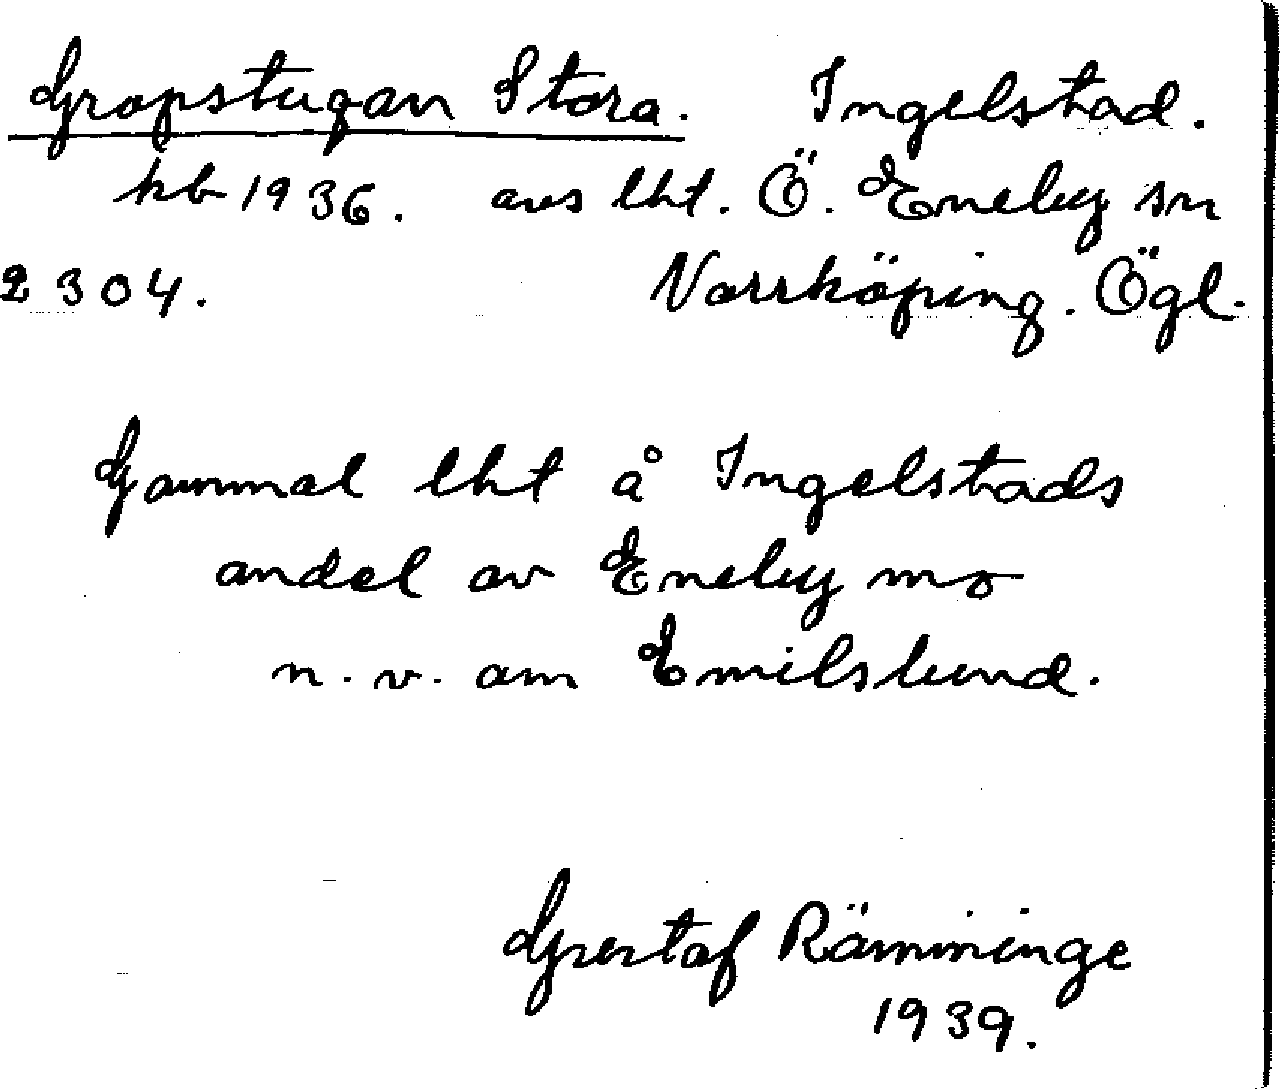 Gropstugan Stora. Ingelstad.
kb 1936. avs lht. Ö. Eneby sn
2304. Norrköping. Ögl.
Gammal lht å Ingelstads
andel av Eneby mo
n. v. om Emilslund.
Gustaf Ramminge
1939.